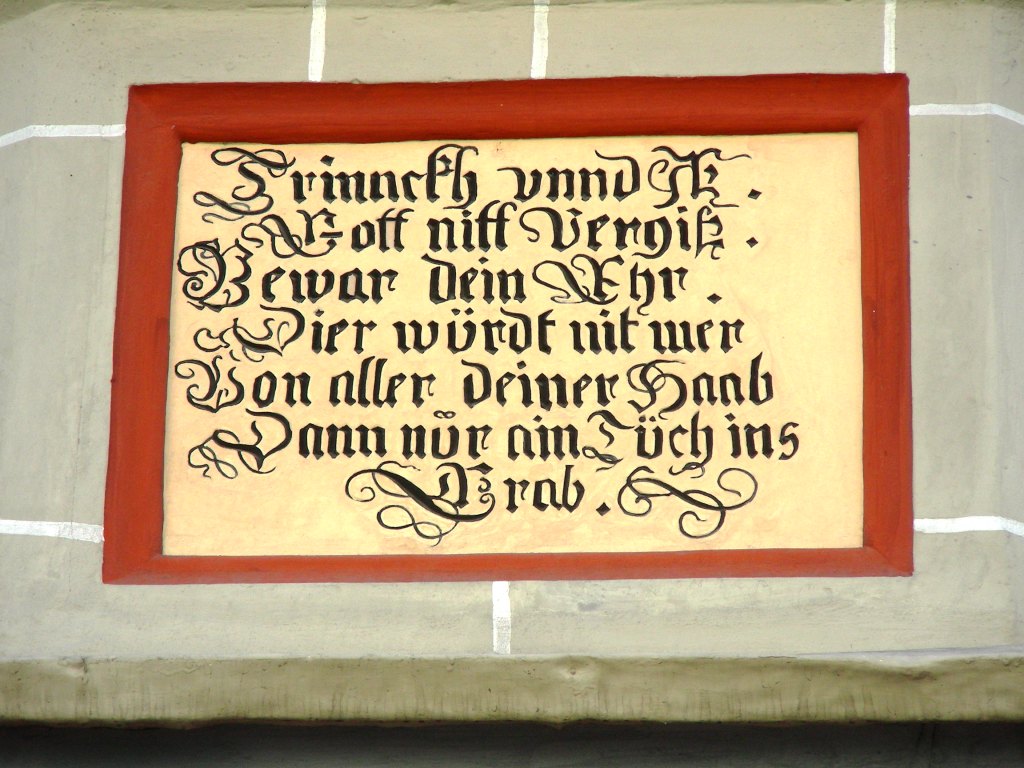 Trinnckh vnnd Iß.
Gott nitt Vergiß.
Bewar dein Ehr.
Dier würdt nit mer
Von aller deiner Haab
Dann nőr ain Tůch ins
Grab.